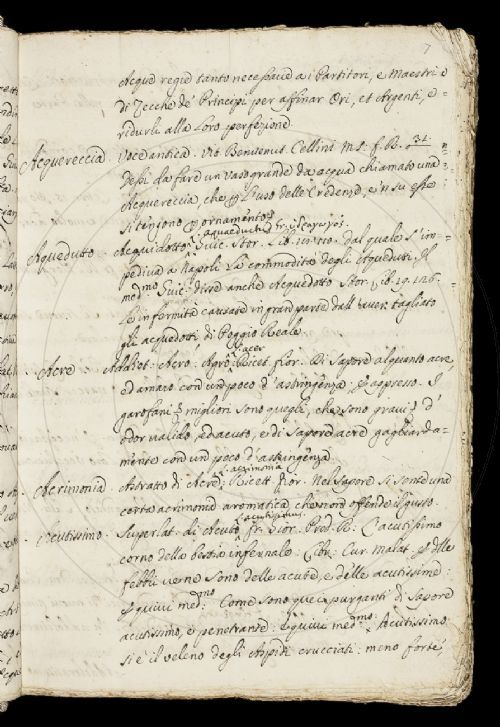 7
Acque regie tanto necessarie a i Partitori, e Maestri
di Zecche de' Principi per affinar Ori, et Argenti, e
ridurli alla loro perfezione
Acquereccia. Voce antica. Vit. Benvenut. Cellini MS. f. B. 31.
da fare un vaso grande da acqua chiamato una
Acquereccia, che l'uso delle Credenze, e'n su esse
si tengono ornamento
aquaeductus
Aquedutto. Acquidotto. Guic. Stor. Lib. dal quale s'im-
pediva a Napoli la commodità degli Aqueduti. Il
med.mo Guic. disse anche Acquedotto Stor. Lib. 19. 126.
Le infermità causate in gran parte dall'aver tagliato
gli acquedotti di Poggio Reale.
acer
Acre. Add. Acro. Agro. Ricet. Fior. Di Sapore alquanto acre,
ed amaro con un poco d'astringenza. I
garofani migliori sono quegli, che sono gravi d'
odor valido, ed acuto, e di Sapore acre gagliarda-
mente con un poco d'astringenza.
acrimonia
Acrimonia. Astratto di Acre. Ricett. Fior. Nel Sapore si sente una
certa acrimonia aromatica che non offende il gusto.
acutissimus
Acutissimo. Superlat. di Acuto. Fr. Gior. Pred. R. L'acutissimo
corno della bestia infernale. Libr. Cur. Malat. delle
febbri verno sono delle acute, e delle acutissime.
E quivi med.mo Come sono que' purganti di Sapore
acutissimo, e penetrante. E quivi med.mo Acutissimo
si è il veleno degli Aspidi crucciati: meno forte